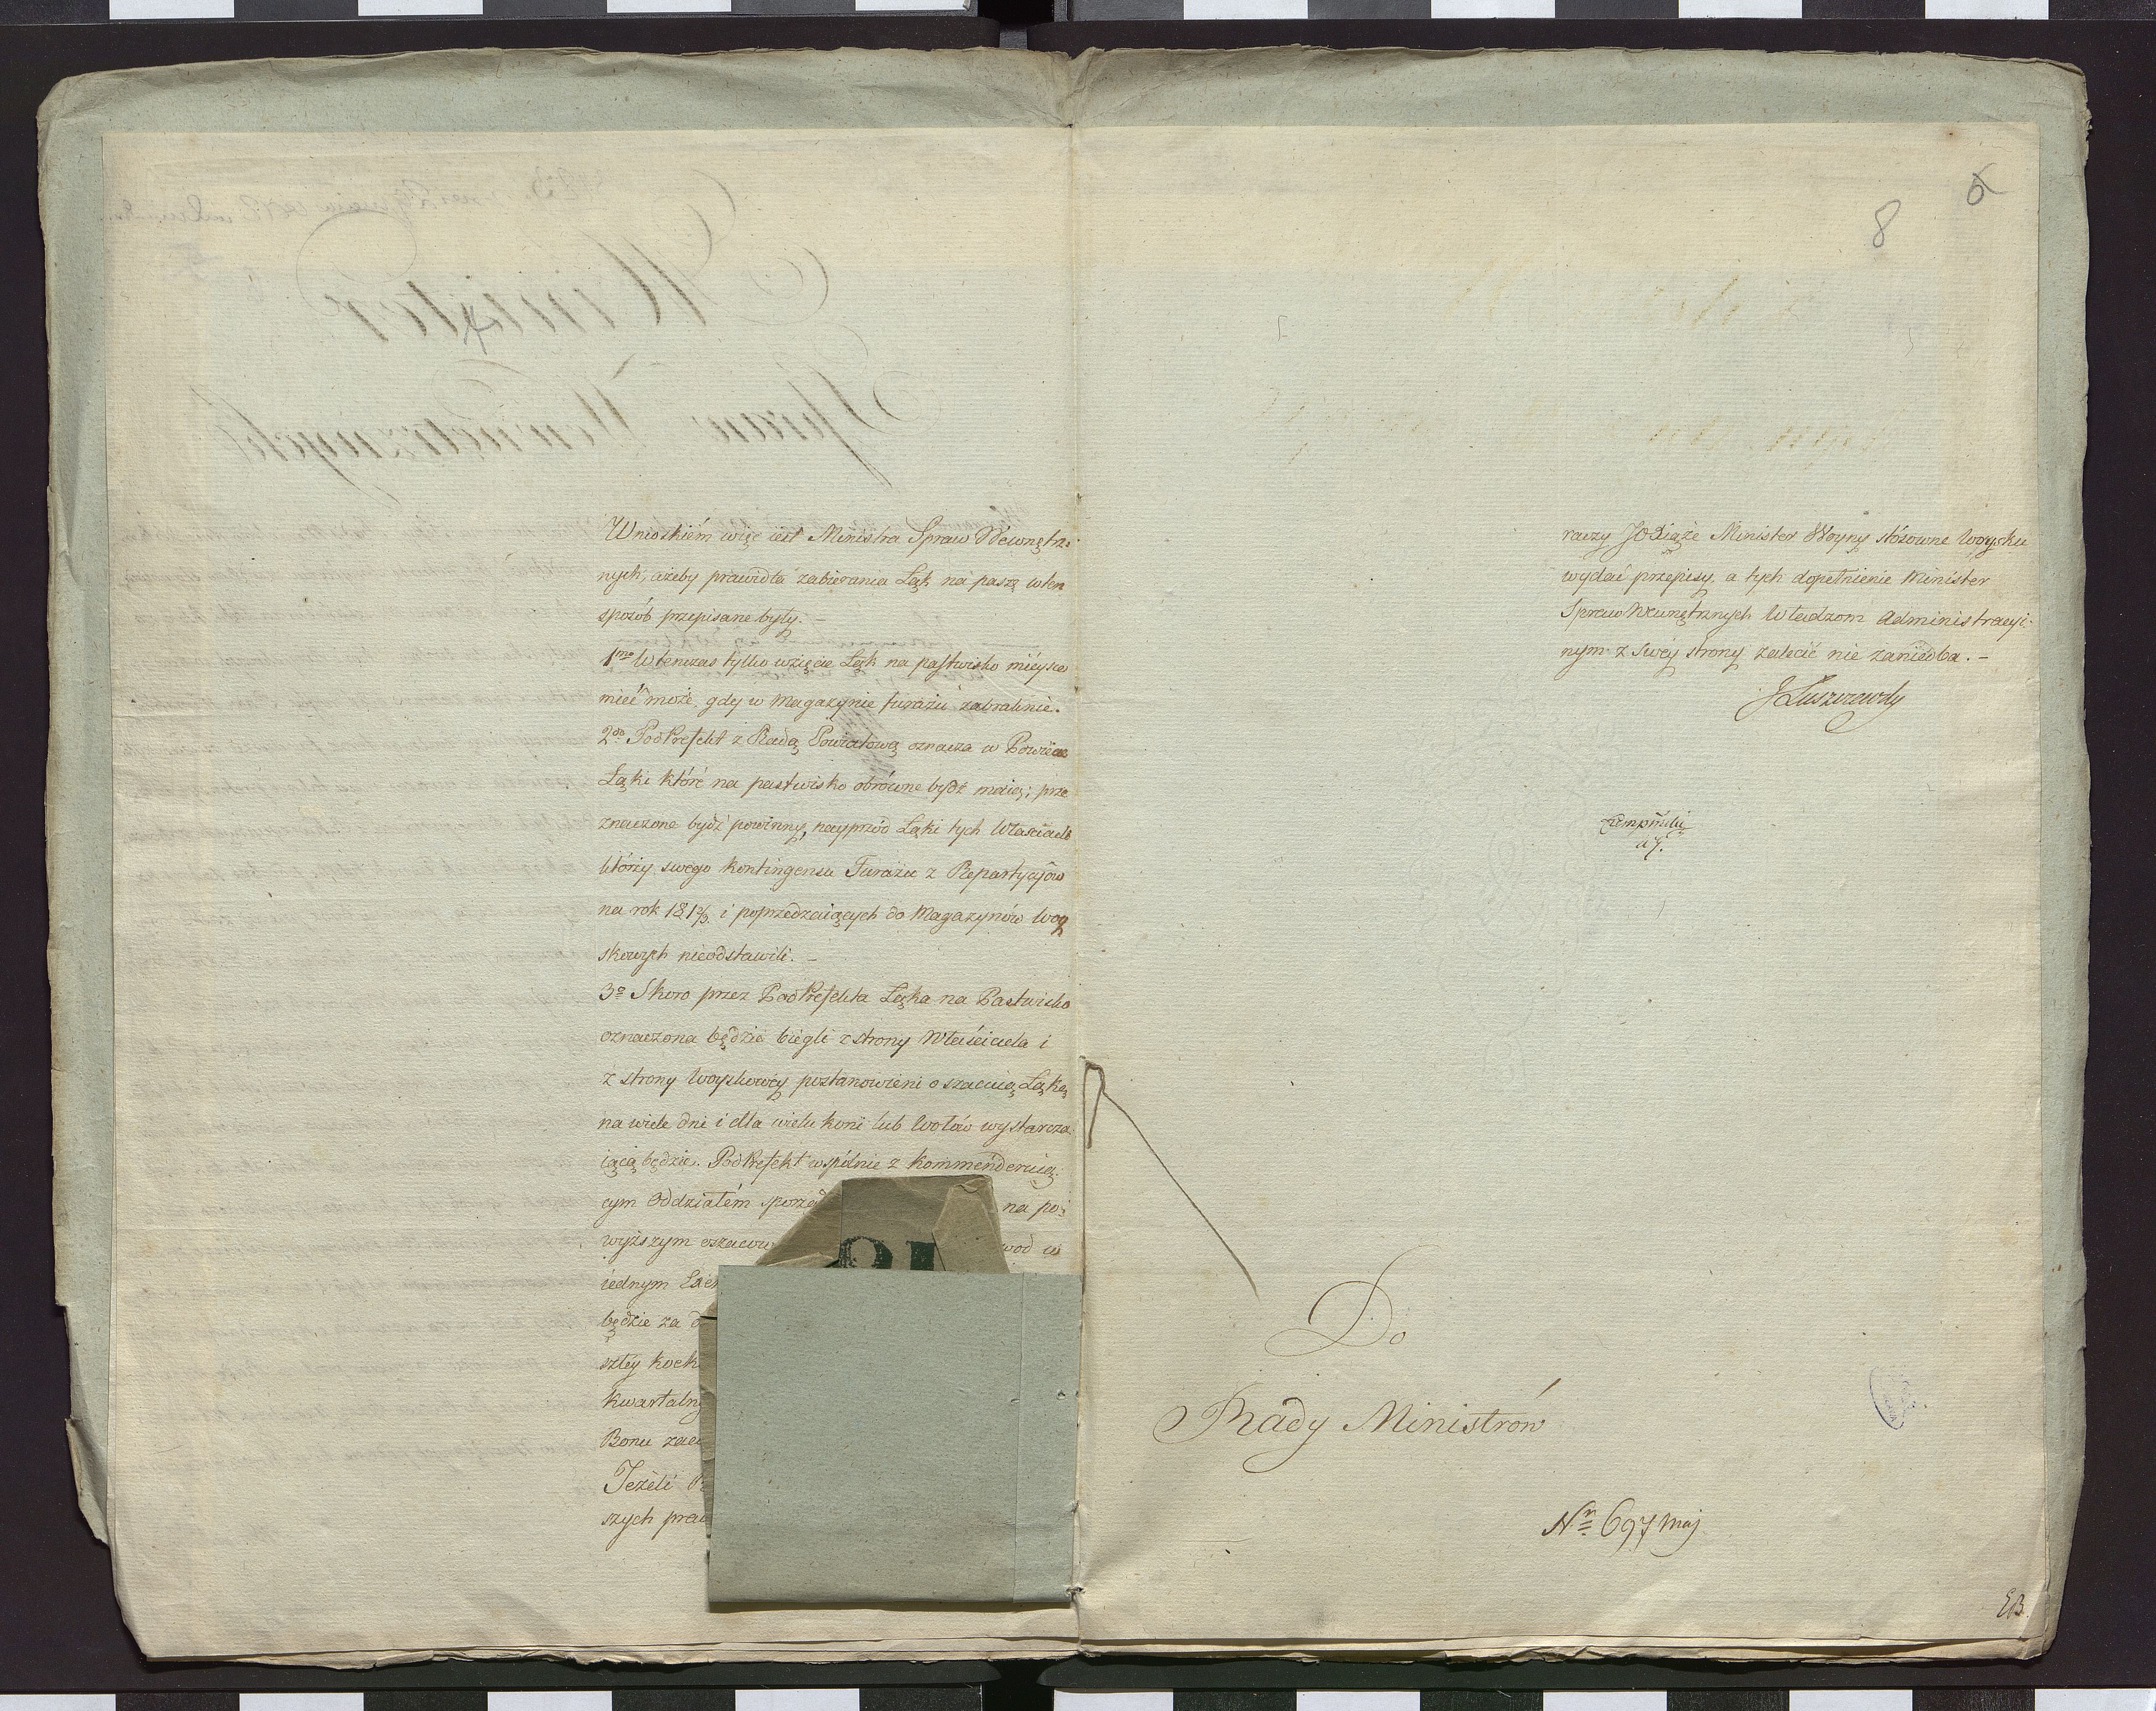 Wnioskiém więc iest Ministra Spraw Wewnętrz-
nych, ażeby prawidła zabierania Łąk na paszę w ten
sposób przepisane były. –
1mo Wtenczas tylko wzięcie Łąk na pastwisko mieysce
mieć może, gdy w Magazynie furażu zabraknie.
2do PodPrefekt z Radą Powiatową oznacza w Powiecie
Łąki któré na pastwisko obrócone bydź maią; prze
znaczone bydź powinny, nayprzód Łąki tych Właścicieli
którzy swego kontingensu Furażu z Repartycyów
na rok 181⅔ i poprzedzaiących do Magazynów Woy
skowych nieodstawili. –
3o Skoro przez PodPrefekta Łąka na Pastwisko
oznaczona będzie biegli z strony Właściciela i
z strony Woyskowéy postanowieni oszacuią Łąkę
na wiele dni i dla wielu koni lub wołów wystarcza-
iącą będzie. PodPrefekt wspólnie z kommenderuią-
cym Oddziałém na po-
wyższym
iednym
będzie za
széy
Bonu
Jeżeli
szych
8
6
raczy JO Xiąże Minister Woyny stósowne Woysku
wydać przepisy, a tych dopełnienie Minister
Spraw Wewnętrznych Władzom Administracyi-
nym z swéy strony zalecić nie zaniedba. –
JŁuszczewsky
Do
Rady Ministrów
Nr 697 maj
EB.